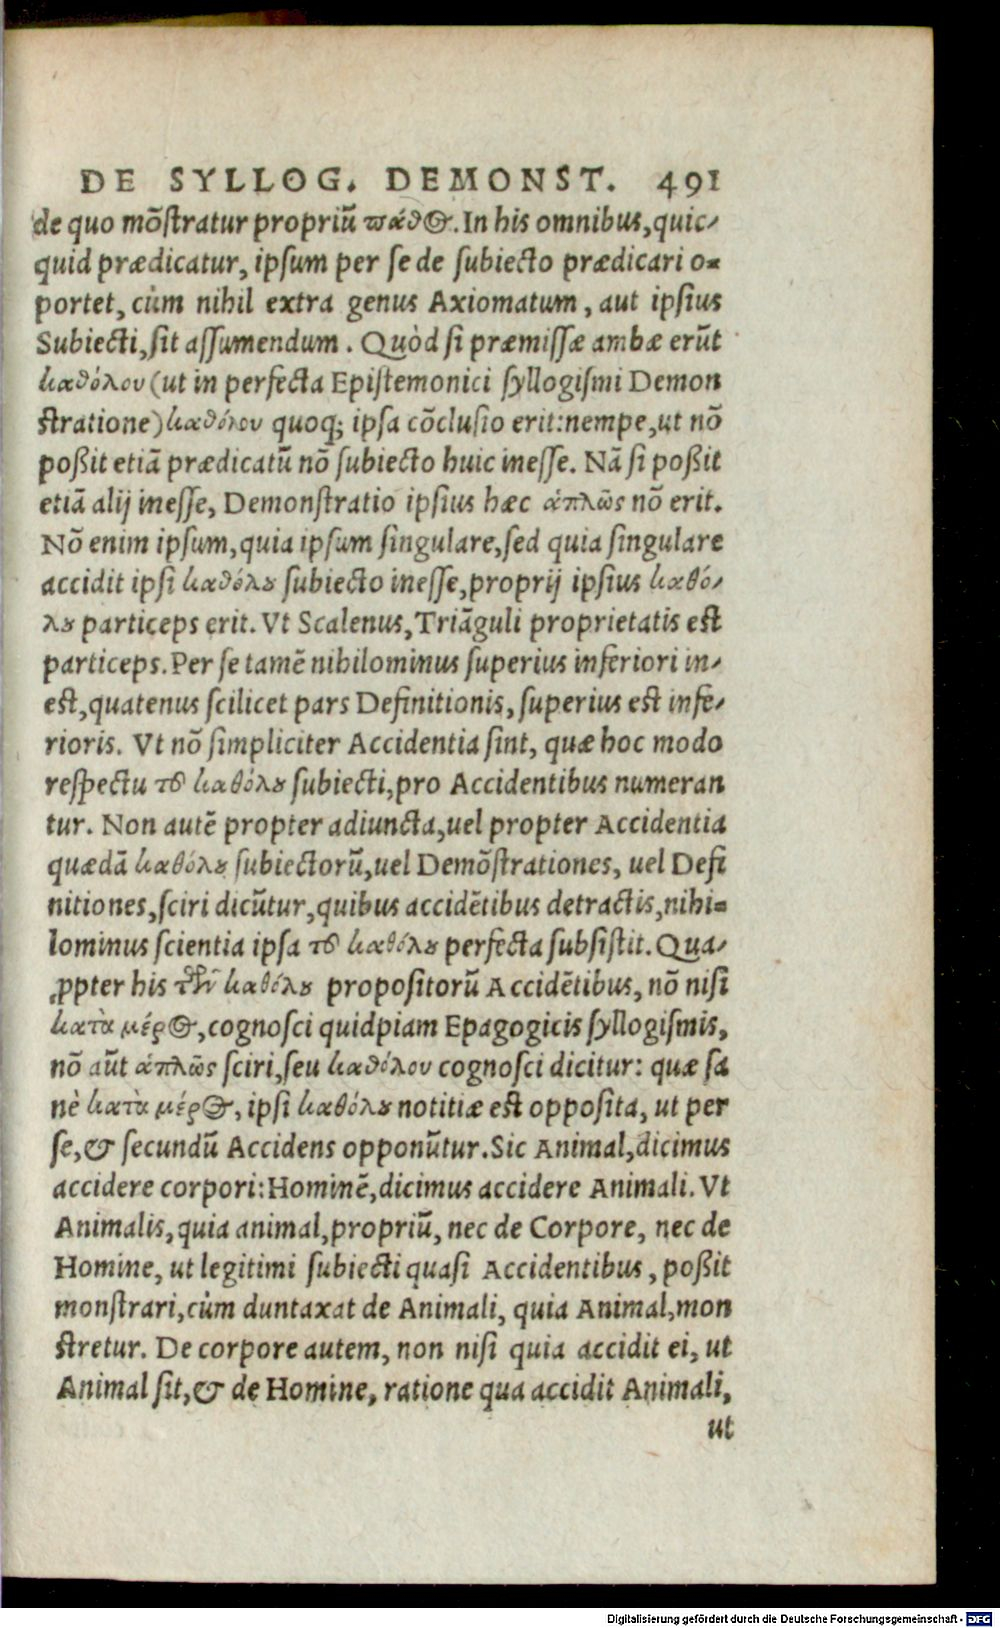 DE SYLLOG. DEMONST. 491
de quo mõſtratur propriũ πάθος. In his omnibus, quic-
quid prædicatur, ipſum per ſe de ſubiecto prædicari o-
portet, cùm nihil extra genus Axiomatum, aut ipſius
Subiecti, ſit aſſumendum. Quòd ſi præmiſſæ ambæ erũt
καθόλου (ut in perfecta Epiſtemonici ſyllogiſmi Demon
ſtratione) καθόλου quoq; ipſa cõcluſio erit: nempe, ut nõ
poßit etiã prædicatũ nõ ſubiecto huic ineſſe. Nã ſi poßit
etiã alij ineſſe, Demonſtratio ipſius hæc ἁπλῶς nõ erit.
Nõ enim ipſum, quia ipſum ſingulare, ſed quia ſingulare
accidit ipſi καθόλȣ ſubiecto ineſſe, proprij ipſius καθό-
λȣ particeps erit. Vt Scalenus, Triãguli proprietatis eſt
particeps. Per ſe tamẽ nihilominus ſuperius inferiori in-
eſt, quatenus ſcilicet pars Definitionis, ſuperius eſt infe-
rioris. Vt nõ ſimpliciter Accidentia ſint, quæ hoc modo
reſpectu τȣ͂ καθόλȣ ſubiecti, pro Accidentibus numeran
tur. Non autẽ propter adiuncta, uel propter Accidentia
quædã καθόλȣ ſubiectorũ, uel Demõſtrationes, uel Defi
nitiones, ſciri dicũtur, quibus accidẽtibus detractis, nihi-
lominus ſcientia ipſa τȣ͂ καθόλȣ perfecta ſubſiſtit. Qua-
ꝓpter his τῶν καθόλȣ propoſitorũ Accidẽtibus, nõ niſi
κατὰ μέρος, cognoſci quidpiam Epagogicis ſyllogiſmis,
nõ aũt ἁπλῶς ſciri, ſeu καθόλου cognoſci dicitur: quæ ſa
nè κατὰ μέρος, ipſi καθόλȣ notitiæ eſt oppoſita, ut per
ſe, & ſecundũ Accidens opponũtur. Sic Animal, dicimus
accidere corpori: Hominẽ, dicimus accidere Animali. Vt
Animalis, quia animal, propriũ, nec de Corpore, nec de
Homine, ut legitimi ſubiecti quaſi Accidentibus, poßit
monſtrari, cùm duntaxat de Animali, quia Animal, mon
ſtretur. De corpore autem, non niſi quia accidit ei, ut
Animal ſit, & de Homine, ratione qua accidit Animali,
ut
Digitalisierung gefördert durch die Deutsche Forschungsgemeinschaft - DFG